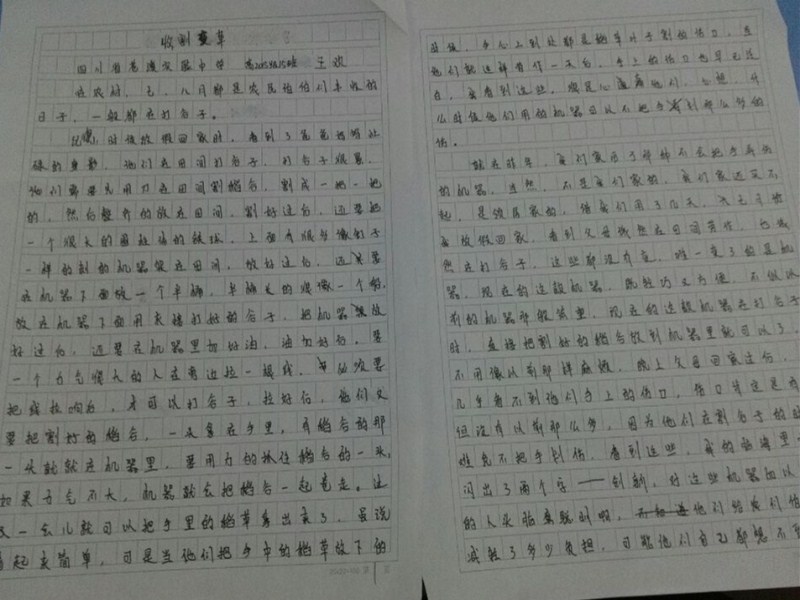 收割变革
四川省苍溪实验中学 王欢
在农村,七、八月都是农民伯伯们丰收的
日子,一般都在打谷子。
记得小时候放假回家时,看到了爸爸妈妈忙
碌的身影,他们在田间打谷子,打谷子很累,
他们需要先用刀在田间割稻谷,割成一把一把
的,然后整齐的放在田间,割好过后,还要把
一个很大的圆柱体的铁球,上面有很多像钉子
一样的刺的机器安在田间,放好过后,还要
在机器下面放一个半桶,半桶大约像一个船,
放在机器下面用来接打好的谷子,把机器放
好过后,还要在机器里加好油,油加好后,要
一个力气很大的人在旁边拉一根线,必须要
把线拉响后,才可以打谷子,拉好后,他们又
要把割好的稻谷,一头拿在手里,有稻谷的那
一头就放在机器里,要用力的抓住稻谷的一头,
如果力气不大,机器就会把稻谷一起卷走。过
一会儿就可以把手里的稻草拿出来了,虽说
看起来简单,可是当他们把手中的稻草放下的
时候,手心上到处都是稻草叶子割的伤口,当
他们就这样工作一天后,手上的伤口也早已泛
白,每看到这些,我是心疼他们,心想,什
么时候他们用的机器可以不把手割那么多的
伤。
就在昨年,我们家用了那种不会把手弄伤
的机器,当然,不是我们家的,我们家还买不
起,是邻居家的,借我们用了几天,
我放假回家,看到父母依然在田间劳作,仍旧
然在打谷子,这些都没有变,唯一变了的是机
器,现在的这般机器,既轻巧又方便,不似以
前的机器那般笨重,现在的这般机器在打谷子
时,直接把割好的稻谷放到机器里就可以了,
不用像以前那样麻烦,晚上父母回家过后,
几乎看不到他们手上的伤口,伤口肯定是有
但没有以前那么多,因为他们在割谷子的时
难免不把手划伤,看到这些,我的脑海里
闪出了两个字——创新,对这些机器加以
的人头脑要既别啊,他们给农民伯
减轻了多少负担,可能他们自己都想不